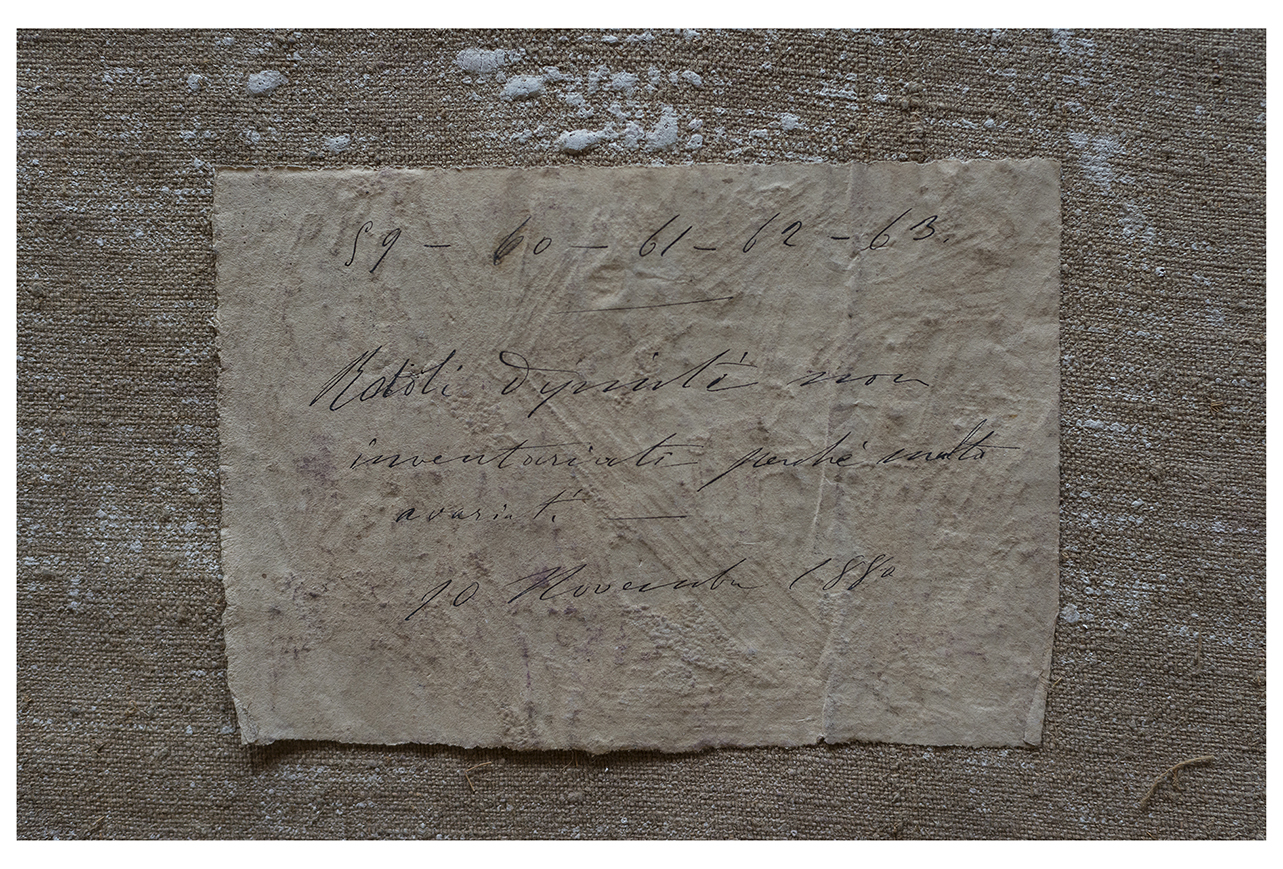 59 – 60 – 61 – 62 – 63.
Rotoli dipinti non
inventariati perché molto
avariati. —
10 Novembre 1880